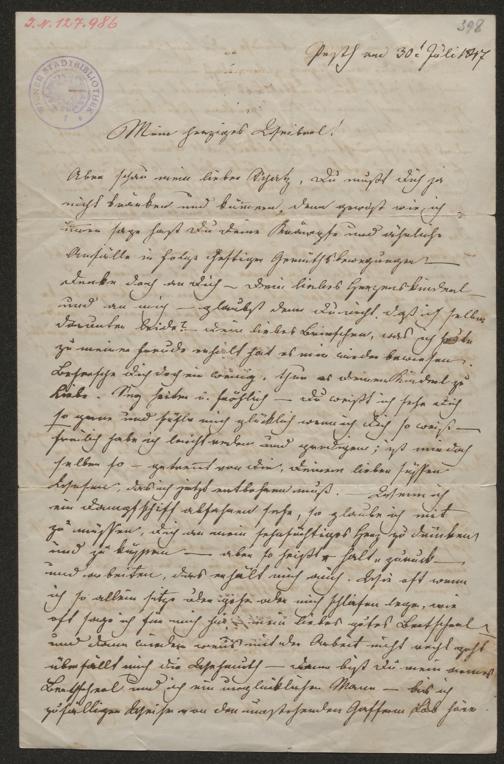 I.N. 127.986
398
WIENER STADTBIBLIOTHEK
Pesth am 30t Juli 1847
Mein herziges Weiberl!
Aber schau mein lieber Schatz, Du mußt Dich ja
nicht kränken und kümern, denn gewiß wie ich
immer sage hast Du Deine Krämpfe und ähnliche
Anfälle in Folge heftiger Gemüthsbewegungen
denke doch an Dich – Dein liebes Herzenskinderl
und an mich – glaubst denn Du nicht daß ich selber
darunter leide? – Dein liebes Briefchen, was ich heute
zu meiner Freude erhielt hat es mir wieder bewiesen.
Beherrsche Dich doch ein wenig, thue es Deinem Kinderl zu
Liebe. Sey heiter u. fröhlich – Du weißt ich sehe Dich
so gerne und fühle mich glücklich wenn ich Dich so weiß –
freilich habe ich leicht reden und predigen; ist mir doch
selber so – getrennt von Dir, Deinem lieben süssen
das ich jetzt entbehren muß. – Wenn ich
ein Dampfschiff abfahren sehe, so glaube ich mit
zu müssen, Dich an mein sehnsüchtiges Herz zu drücken
und zu küssen – aber so heißt's halt zurück –
und arbeiten, das erhält mich auch. Wie oft wenn
ich so allein sitze oder gehe oder mich schlafen lege, wie
oft sage ich für mich hin mein liebes gutes
und dann wieder wenn's mit der Arbeit nicht recht geht
überfällt mich die Wehmuth – dann bist Du mein armes
und ich ein unglücklicher Mann – bis ich
zufälliger Weise von den umstehenden Gaffern Lob höre.